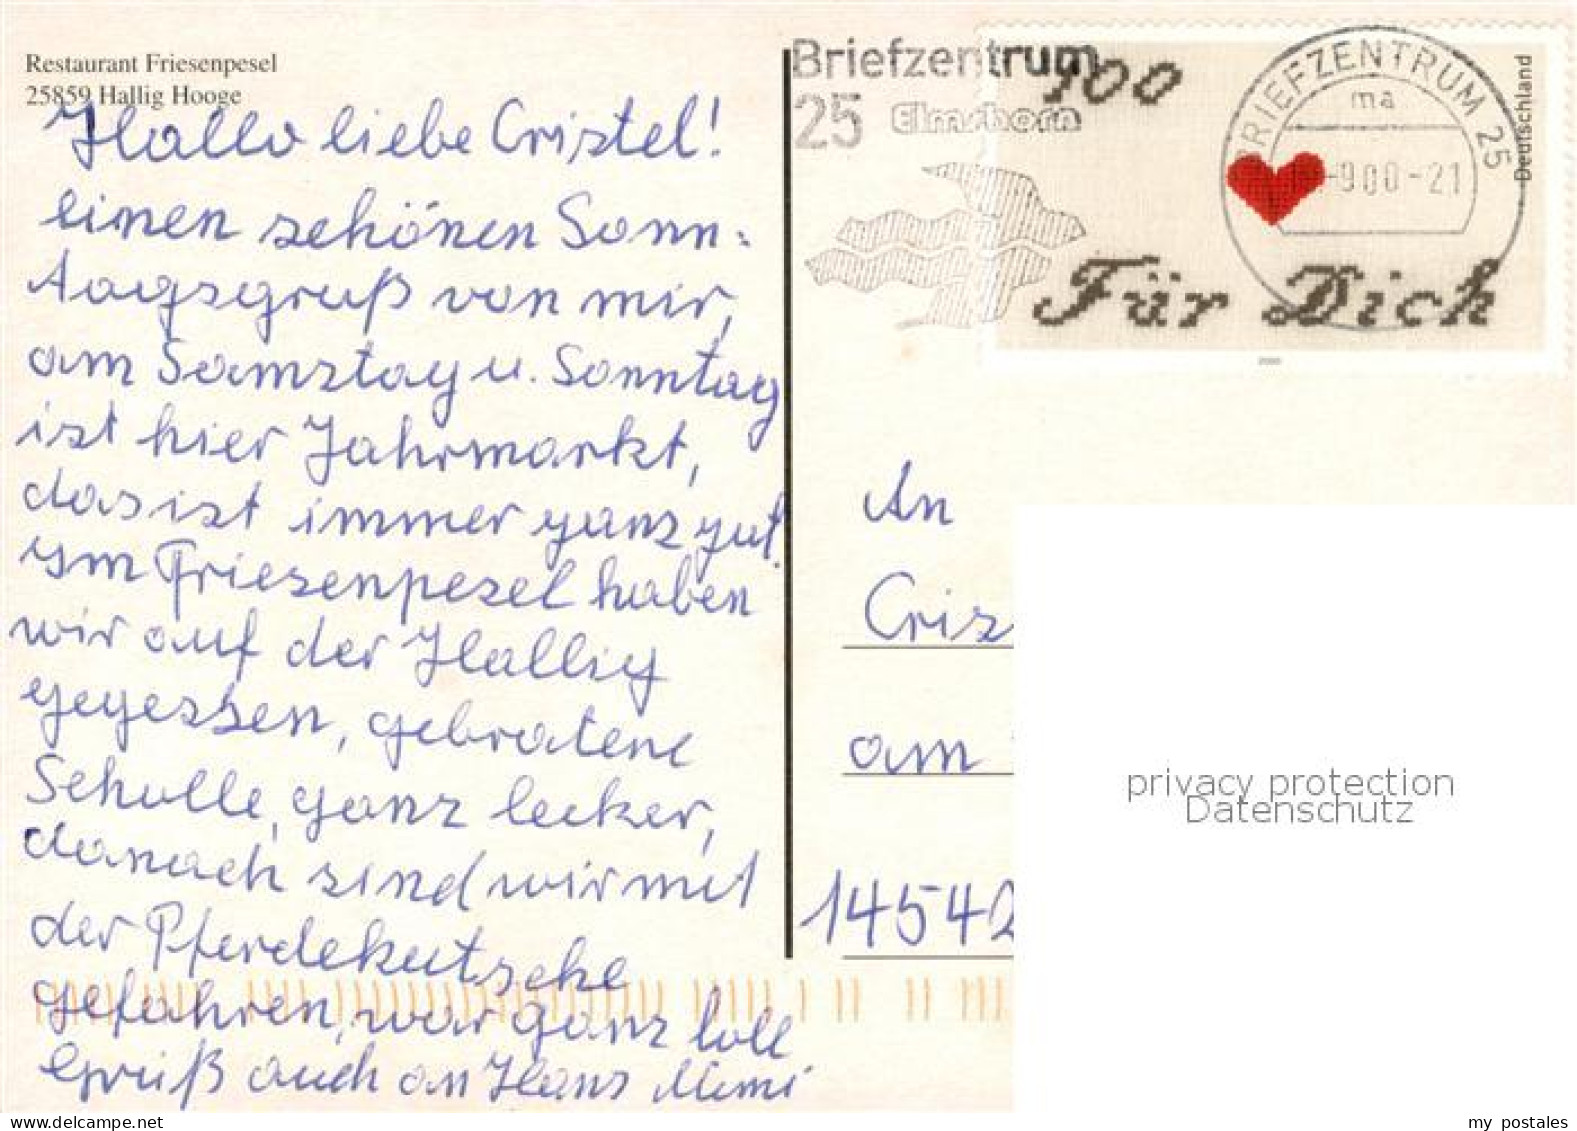 Restaurant Friesenpesel
25859 Hallig Hooge
Hallo liebe Cristel!
einen schönen Sonn-
tagsgruß von mir,
am Samstag u. Sonntag
ist hier Jahrmarkt,
das ist immer ganz gut.
Im Friesenpesel haben
wir auf der Hallig
gegessen, gebratene
Scholle, ganz lecker,
danach sind wir mit
der Pferdekutsche
gefahren, war ganz toll
Gruß auch an Hans Mimi
Briefzentrum
25 Elmshorn
100
Für Dich
Deutschland
2000
BRIEFZENTRUM 25
ma
-900-21
An
Cris
am
14542
privacy protection
Datenschutz
www.delcampe.net
my_postales